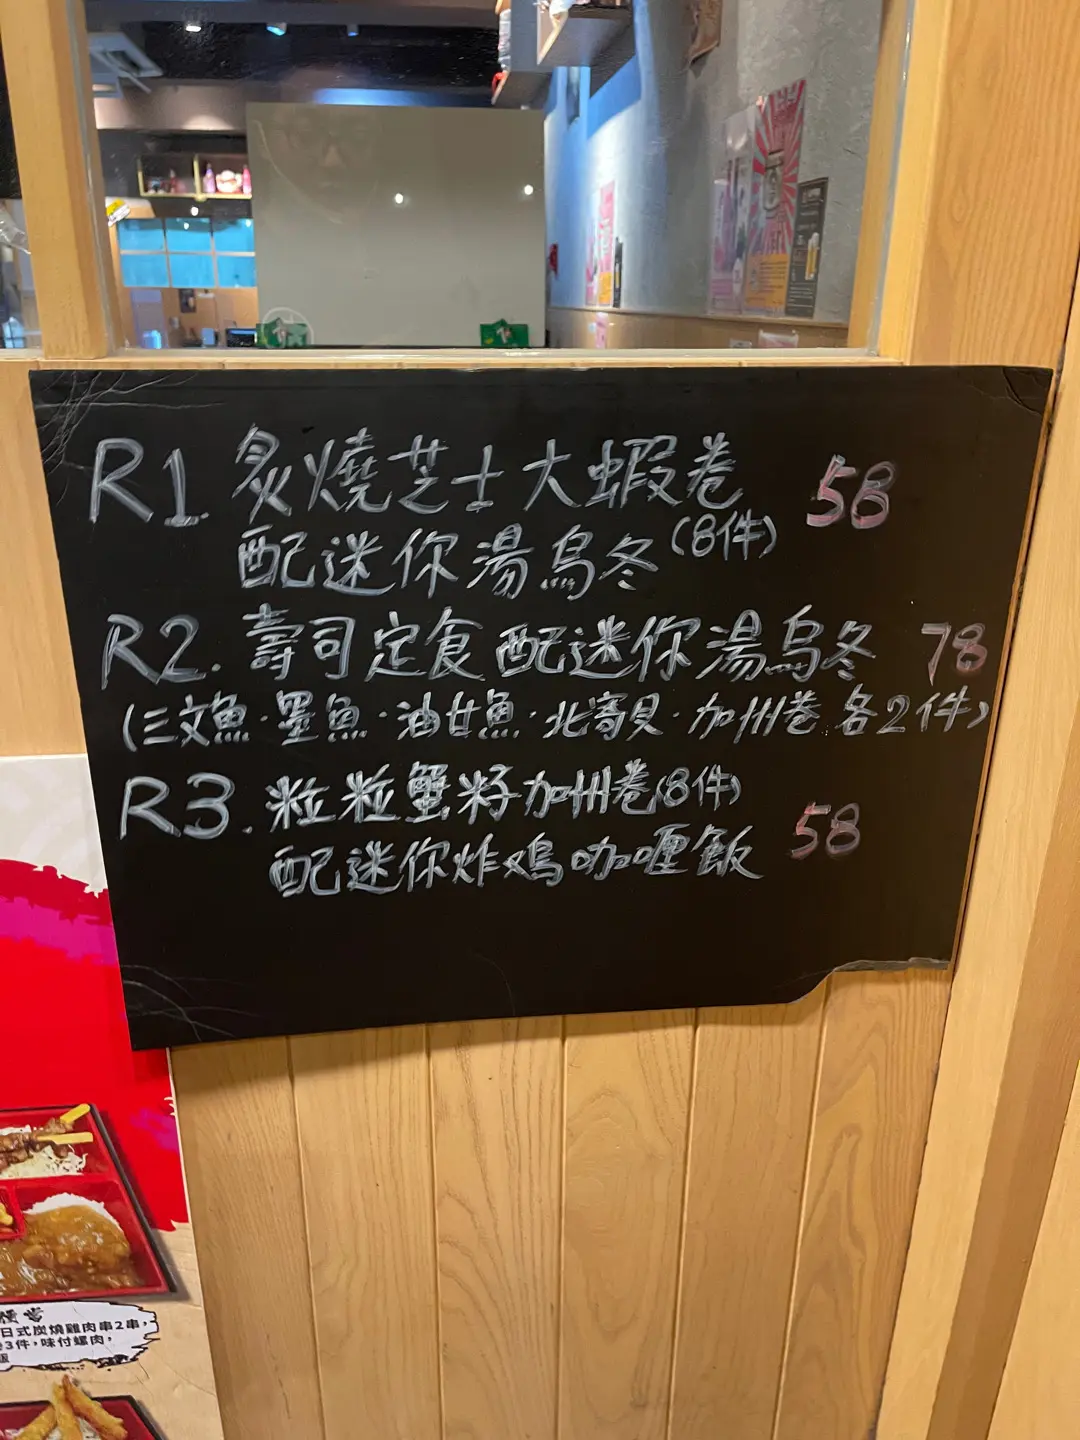 R1. 炙燒芝士大蝦卷 58
配迷你湯烏冬(8件)
R2. 壽司定食 配迷你湯烏冬 78
(三文魚·墨魚·油甘魚·北寄貝·加州卷 各2件)
R3. 粒粒蟹籽加州卷(8件)
配迷你炸鸡咖喱飯 58
日式炭燒雞肉串2串,
3件,味付螺肉,